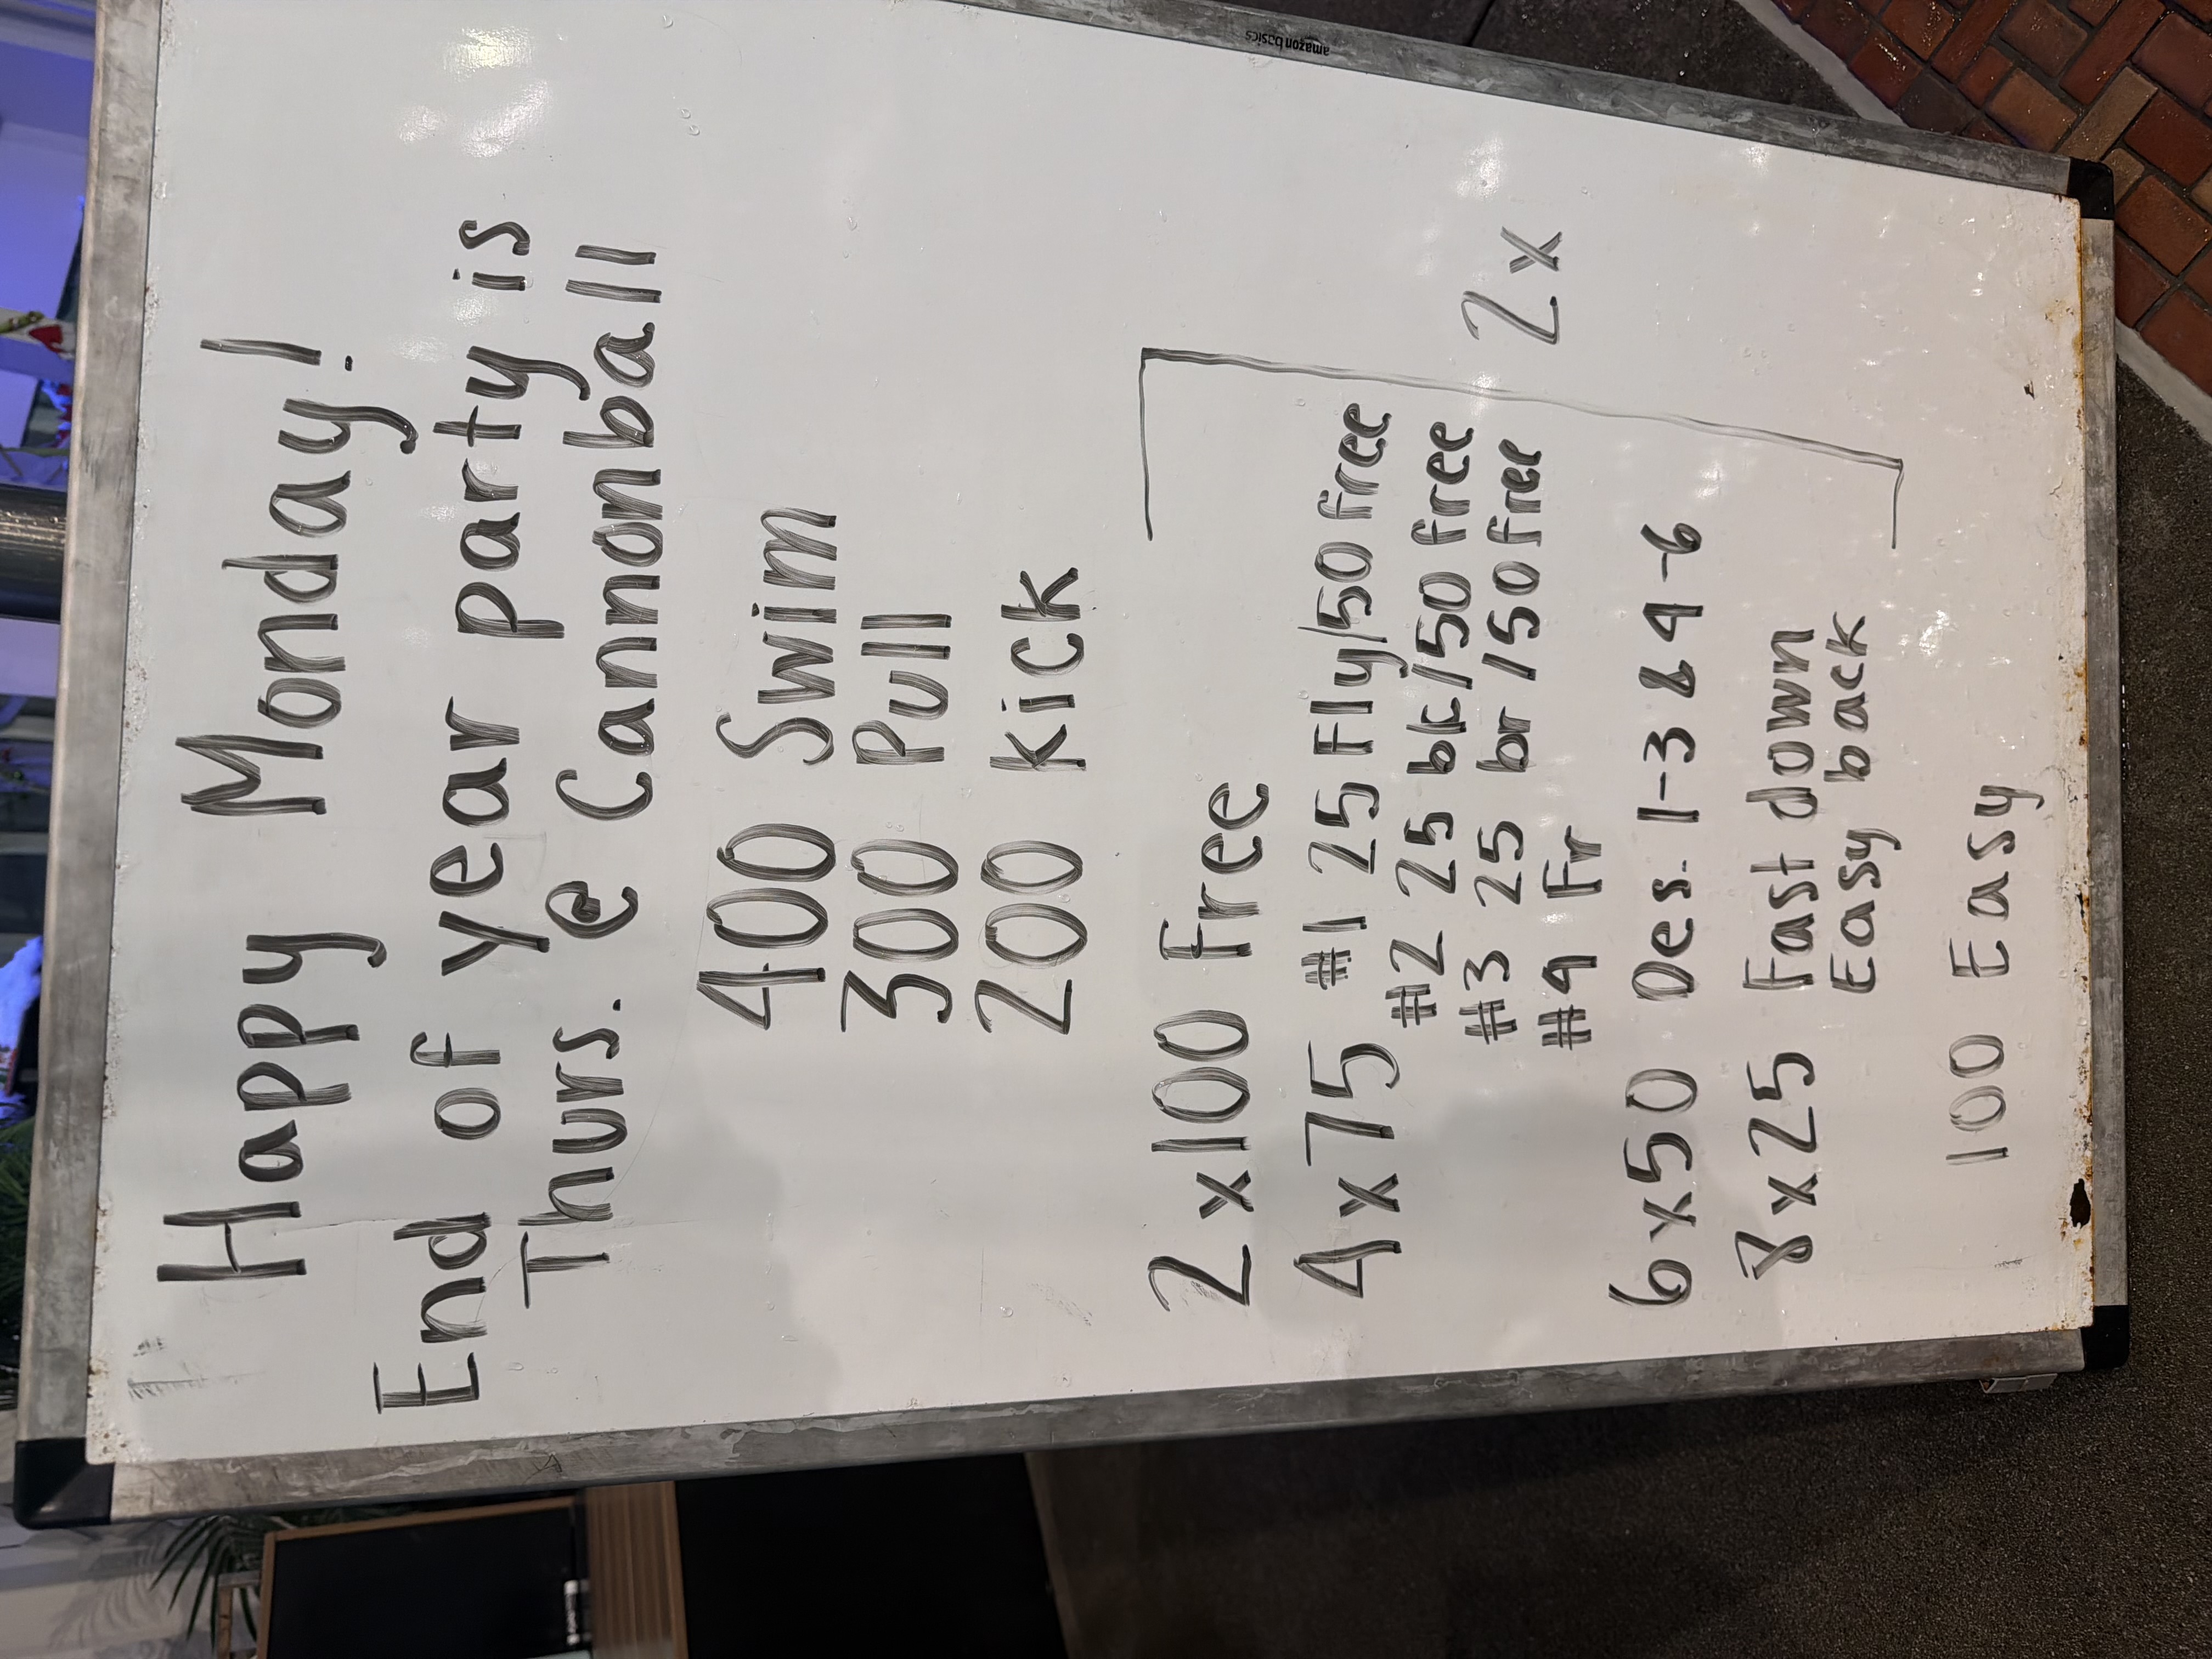 amazon basics
Happy Monday!
End of year party is
Thurs. @ Cannonball
400 Swim
300 Pull
200 Kick
2x100 Free
4x75 #1 25 Fly/50 free
#2 25 bk/50 free
#3 25 br/50 free
#4 Fr
2x
6x50 Des. 1-3 & 4-6
8x25 Fast down
Easy back
100 Easy